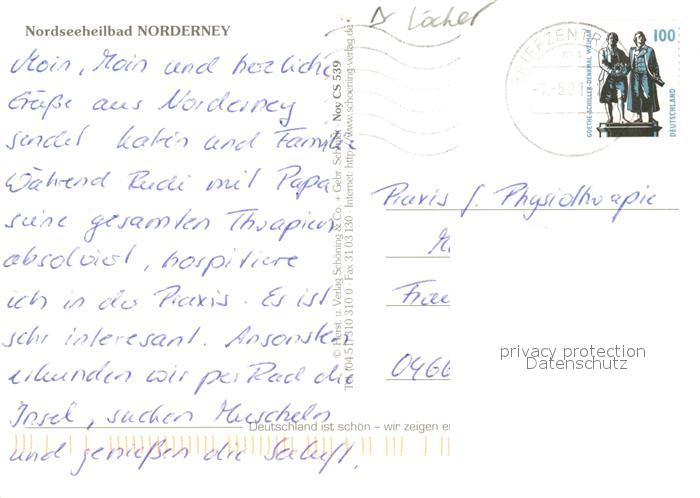 Nordseeheilbad NORDERNEY
Moin, Moin und herzliche
Grüße aus Norderney
sendet Katrin und Familie
Während Rudi mit Papa
seine gesamten Therapien
absolviert, hospitiere
ich in der Praxis. Es ist
sehr interessant. Ansonsten
erkunden wir per Rad die
Insel, suchen Muscheln
und genießen die Seeluft.
© Herst. u. Verlag Schöning & Co. + Gebr. Schmidt Noy CS 539
Tel. (04 51) 310 310 0 · Fax 31 03 130 · Internet: http://www.schoening-verlag.de
Deutschland ist schön – wir zeigen es
Löcher
BRIEFZENTR
GOETHE-SCHILLER-DENKMAL WEIMAR
100
DEUTSCHLAND
Praxis f. Physiotherapie
Frau
0466
privacy protection
Datenschutz